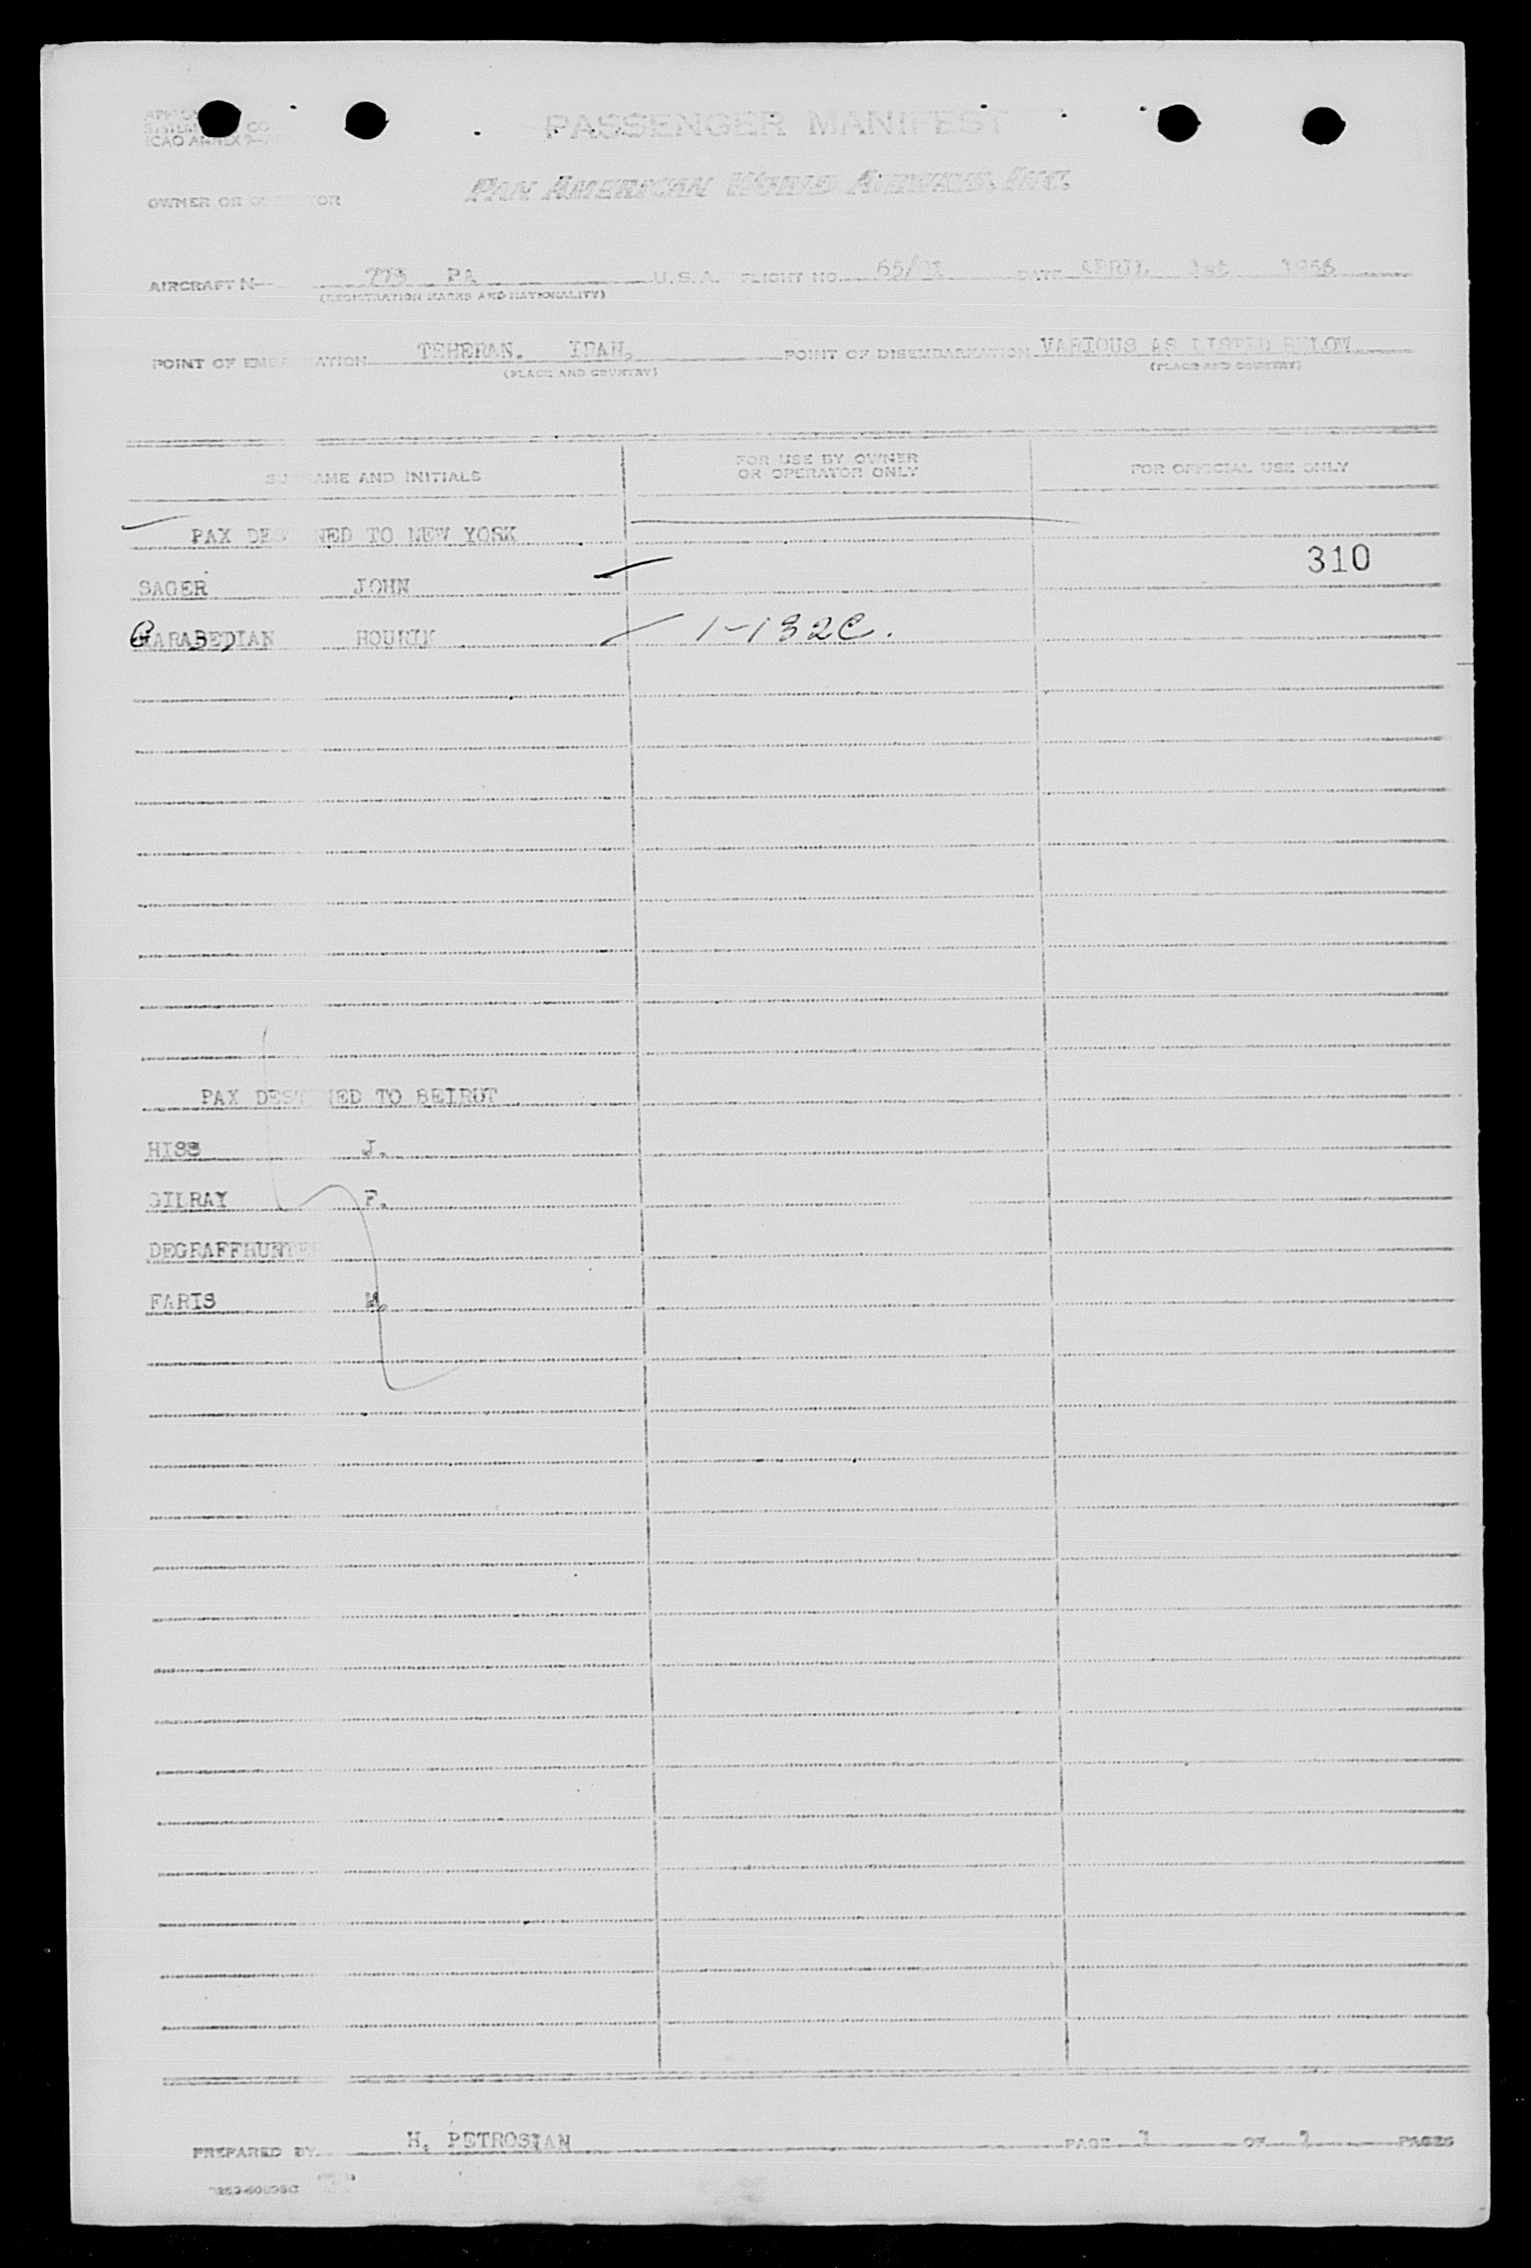 PASSENGER MANIFEST
ICAO ANNEX
PAN AMERICAN WORLD AIRWAYS, INC.
OWNER OR OR
AIRCRAFT N PA U.S.A. FLIGHT NO. DATE APRIL 1st
(REGISTRATION MARKS AND NATIONALITY)
POINT OF TEHERAN. POINT OF DISEMBARKATION VARIOUS AS LISTED BELOW
(PLACE AND COUNTRY) (PLACE AND COUNTRY)
AND INITIALS FOR USE BY OWNER
OR OPERATOR ONLY FOR OFFICIAL USE ONLY
PAX NED TO NEW YORK
310
SAGER JOHN
GARABEDIAN HOURIK 1-132C.
PAX DEST NED TO BEIRUT
HISS J.
GILRAY F.
DEGRAFFHUNTE
FARIS M.
PREPARED BY H. PETROSIAN PAGE 1 OF PAGES